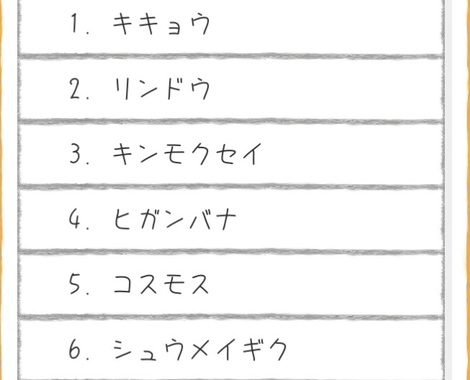 1. キキョウ
2. リンドウ
3. キンモクセイ
4. ヒガンバナ
5. コスモス
6. シュウメイギク